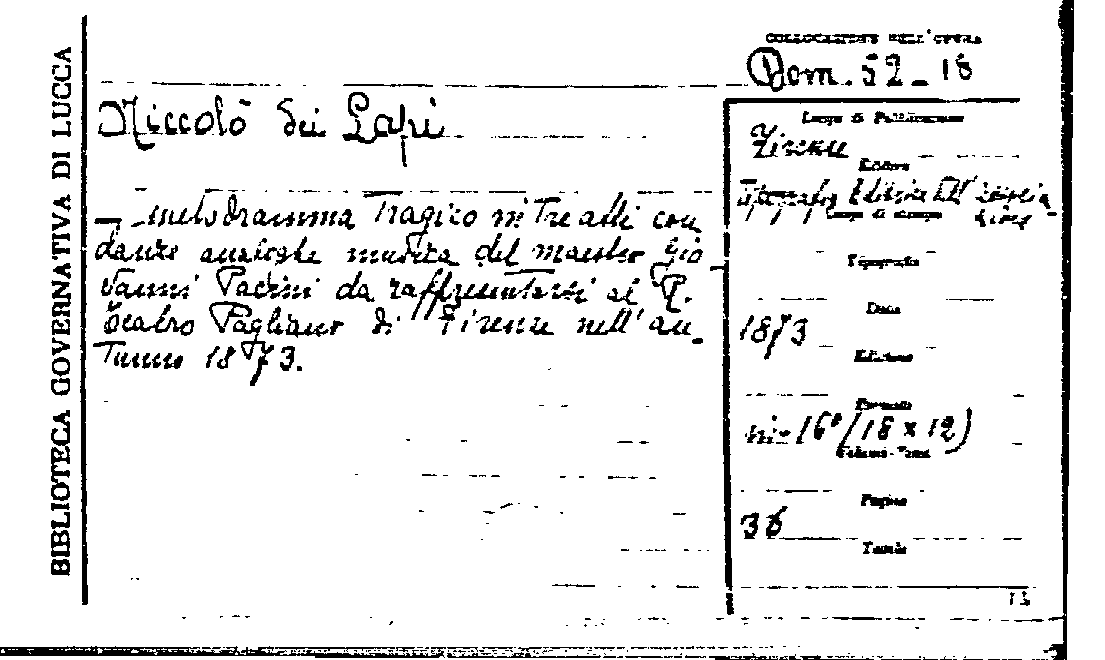 BIBLIOTECA GOVERNATIVA DI LUCCA
COLLOCAZIONE DELL'OPERA
Dom. 52-18
Niccolò dei Lapi
— melodramma tragico in tre atti con
danze analoghe musica del maestro Gio
vanni Pacini da rappresentarsi al R.
teatro Pagliano di Firenze nell'au-
tunno 1873.
Luogo di Pubblicazione
Firenze
Editore
tipografia Editrice dell'
Luogo di stampa
Tipografia
Data
1873
Edizione
Formato
in-16° (18 x 12)
Volumi-Tomi
Pagine
36
Tavole